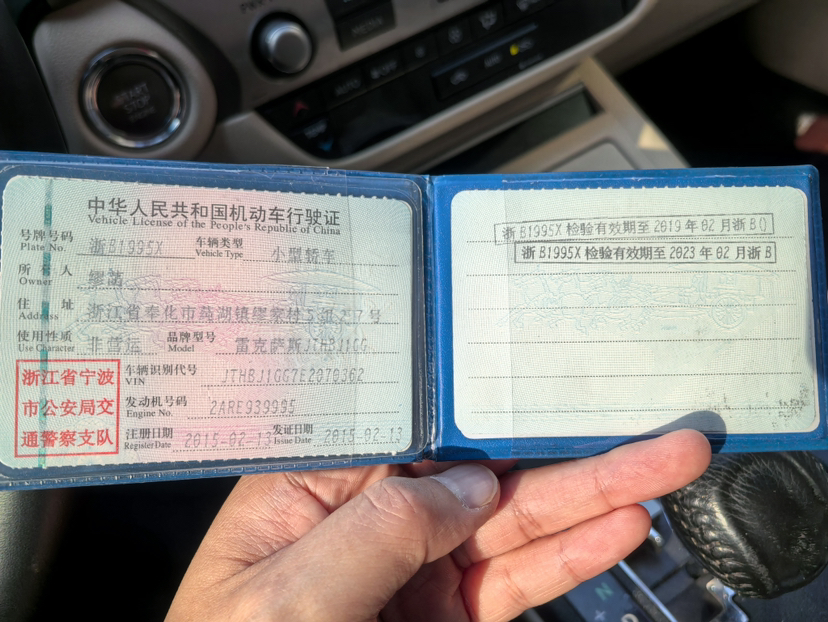 中华人民共和国机动车行驶证
Vehicle License of the People's Republic of China
号牌号码 浙B1995X 车辆类型 小型轿车
Plate No. Vehicle Type
所有人 缪菡
Owner
住址 浙江省奉化市莼湖镇缪家村5组257号
Address
使用性质 非营运 品牌型号 雷克萨斯JTHBJ1GG
Use Character Model
浙江省宁波
市公安局交
通警察支队
车辆识别代号 JTHBJ1GG7E2070362
VIN
发动机号码 2ARE939995
Engine No.
注册日期 2015-02-13 发证日期 2015-02-13
Register Date Issue Date
浙B1995X 检验有效期至 2019 年 02 月浙B()
浙B1995X 检验有效期至 2023 年 02 月浙B
START
STOP
AUTO
N